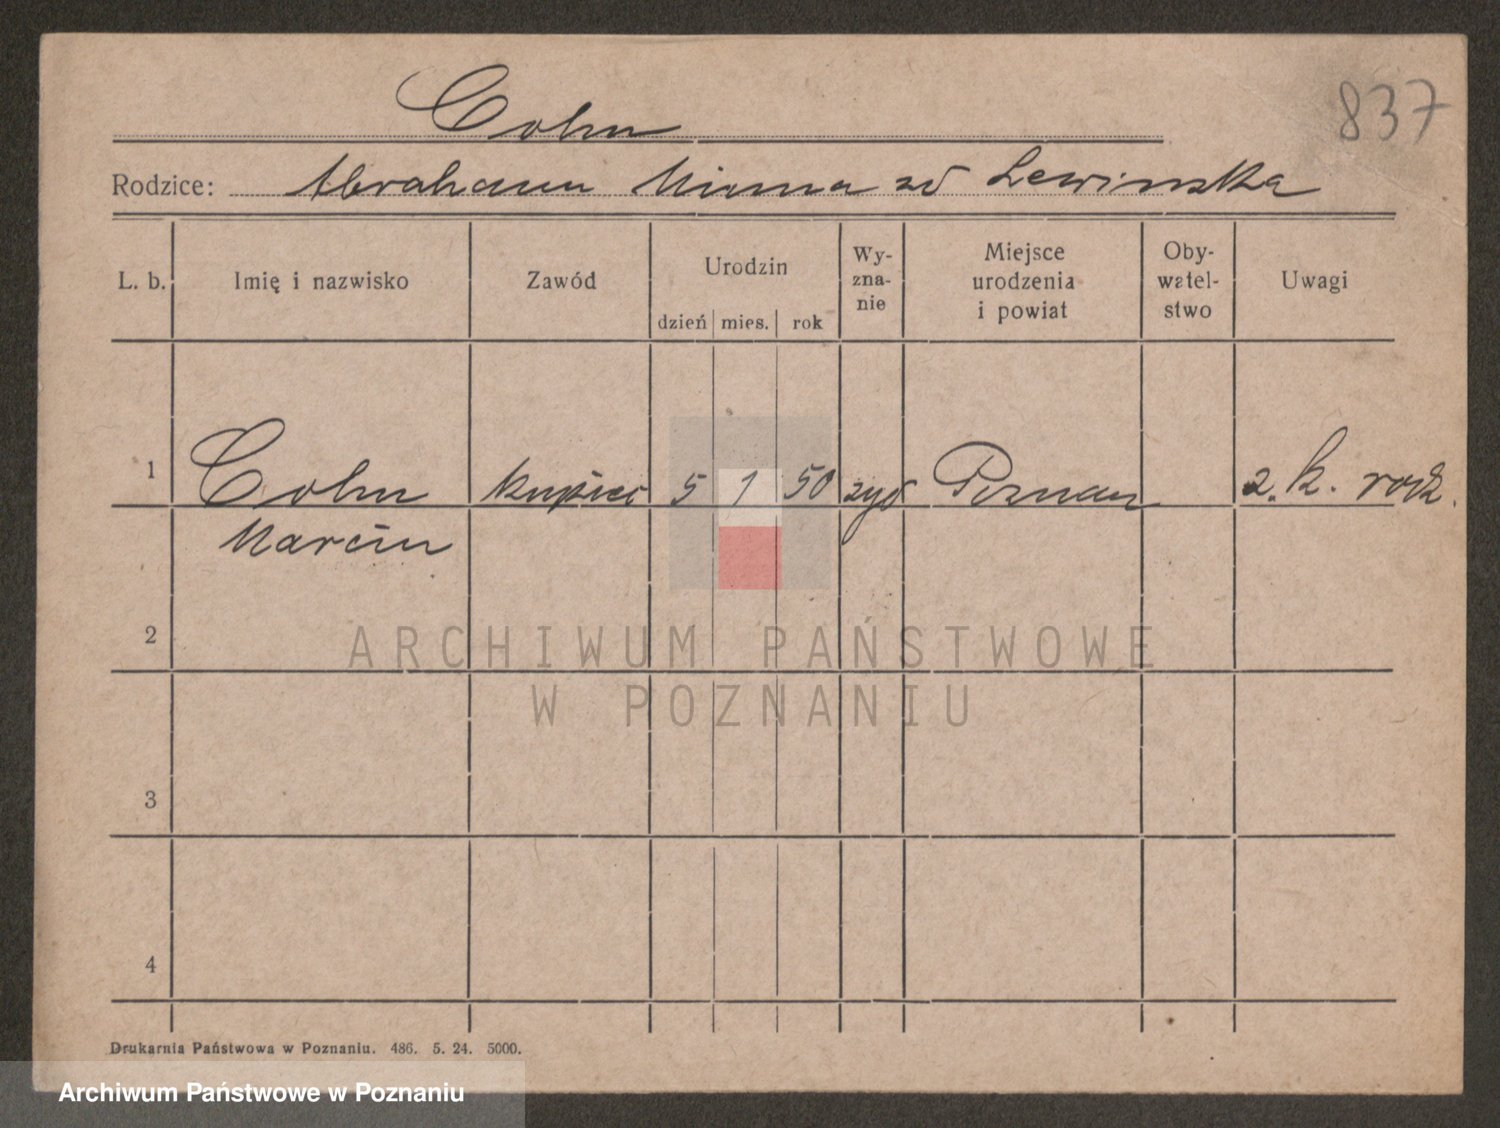 837
Cohn
Rodzice: Abraham Minna zd Lewinska
L. b. Imię i nazwisko Zawód Urodzin dzień mies. rok Wy-zna-nie Miejsce urodzenia i powiat Oby-watel-stwo Uwagi
1 Cohn kupiec 5 1 50 żyd Poznan 2. k. rodz.
Marcin
2
ARCHIWUM PAŃSTWOWE
W POZNANIU
3
4
Drukarnia Państwowa w Poznaniu. 486. 5. 24. 5000.
Archiwum Państwowe w Poznaniu